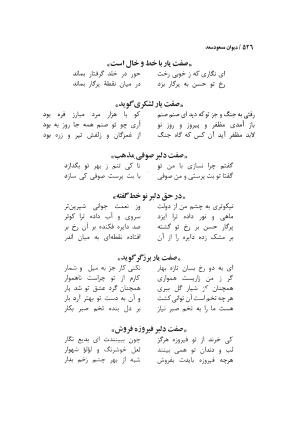 ۵۲۶ / دیوان مسعودسعد
* صفت یار با خط و خال است *
ای نگاری که ز خوبی رخت حور در خلد گرفتار بماند
رخ تو حسن به پرگار بزد دیو نقطهٔ پرگار بماند
* صفت یار لشکری گوید *
رفتی به جنگ و جز تو که دید ای صنم صنم کو با هزار مرد مبارز فره بود
باز آمدی مظفر و پیروز و روز نو آری چو تو صنم همه جا روز به بود
لابد مظفر آید آن کس که گاه جنگ از غمزگان و زلفش تیر و زره بود
* صفت دلبر صوفی مذهب *
گفتم چرا نسازی با من تو تا کی تنم ز بهر تو بگدازد
گفتا تو بت پرستی و من صوفی با بت پرست صوفی کی سازد
* در حق دلبر نو خط گفته *
نیکوتری به چشم من از دولت وز نعمت جوانی شیرین‌تر
ماهی و نور داده ترا ایزد سروی و آب داده ترا کوثر
پرگار حسن بر رخ تو گشته صد دایره فکنده بر آن رخ بر
بر مشک زده دایره را از آن افتاده نقطه‌ای به میان اندر
* صفت یار برزگر گوید *
ای به دو رخ بسان تازه بهار نکنی کار جز به میل و شمار
گر ز من زاریست همواری کارم از تو چراست ناهموار
همچنان کز شیار گل ببری همچنان گرد عشق تو شد یار
هر چه تخم است آن توانی کشت و آن به دست تو بهتر آرد بار
هست ما را به تخم صبر نیاز بر دل بنده تخم صبر بکار
* صفت دلبر فیروزه فروش *
چون کردند از تو فیروزه هرگز چون ببینندت ای بدیع نگار
لب و دندان تو همی بینند لعل خوشرنگ و لؤلؤ شهوار
هرچه فیروزه بایدت بفروش شبه از بهر چشم زخم بدار